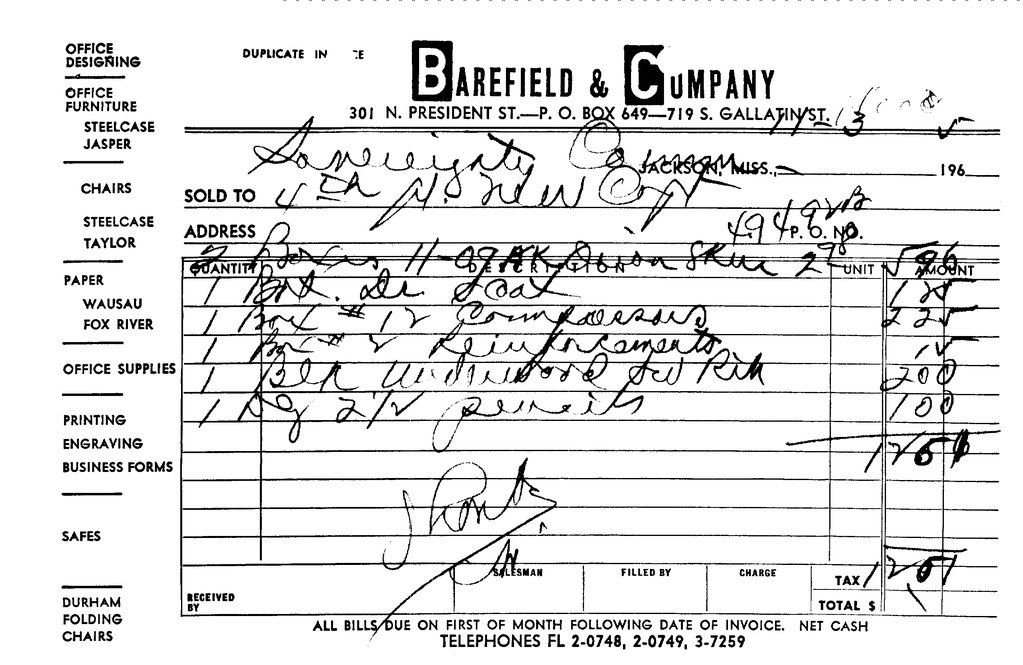 DUPLICATE IN
BAREFIELD & COMPANY
301 N. PRESIDENT ST.—P. O. BOX 649—719 S. GALLATIN ST.
JACKSON, MISS., 196
Sovereignty Comm
SOLD TO 4th Fl. New Cap
ADDRESS P. O. NO.
QUANTITY DESCRIPTION UNIT AMOUNT
2 Boxes 11- 2 98 5 96
1 Bot. 1 25
1 Box # 12 Compressors 2 25
1 Box # 2 Reinforcements 15
1 Blk Underwood Rib 2 00
1 Dz 2 1/2 pencils 1 00
RECEIVED BY
SALESMAN FILLED BY CHARGE TAX
TOTAL $
ALL BILLS DUE ON FIRST OF MONTH FOLLOWING DATE OF INVOICE. NET CASH
TELEPHONES FL 2-0748, 2-0749, 3-7259
OFFICE
DESIGNING
OFFICE
FURNITURE
STEELCASE
JASPER
CHAIRS
STEELCASE
TAYLOR
PAPER
WAUSAU
FOX RIVER
OFFICE SUPPLIES
PRINTING
ENGRAVING
BUSINESS FORMS
SAFES
DURHAM
FOLDING
CHAIRS